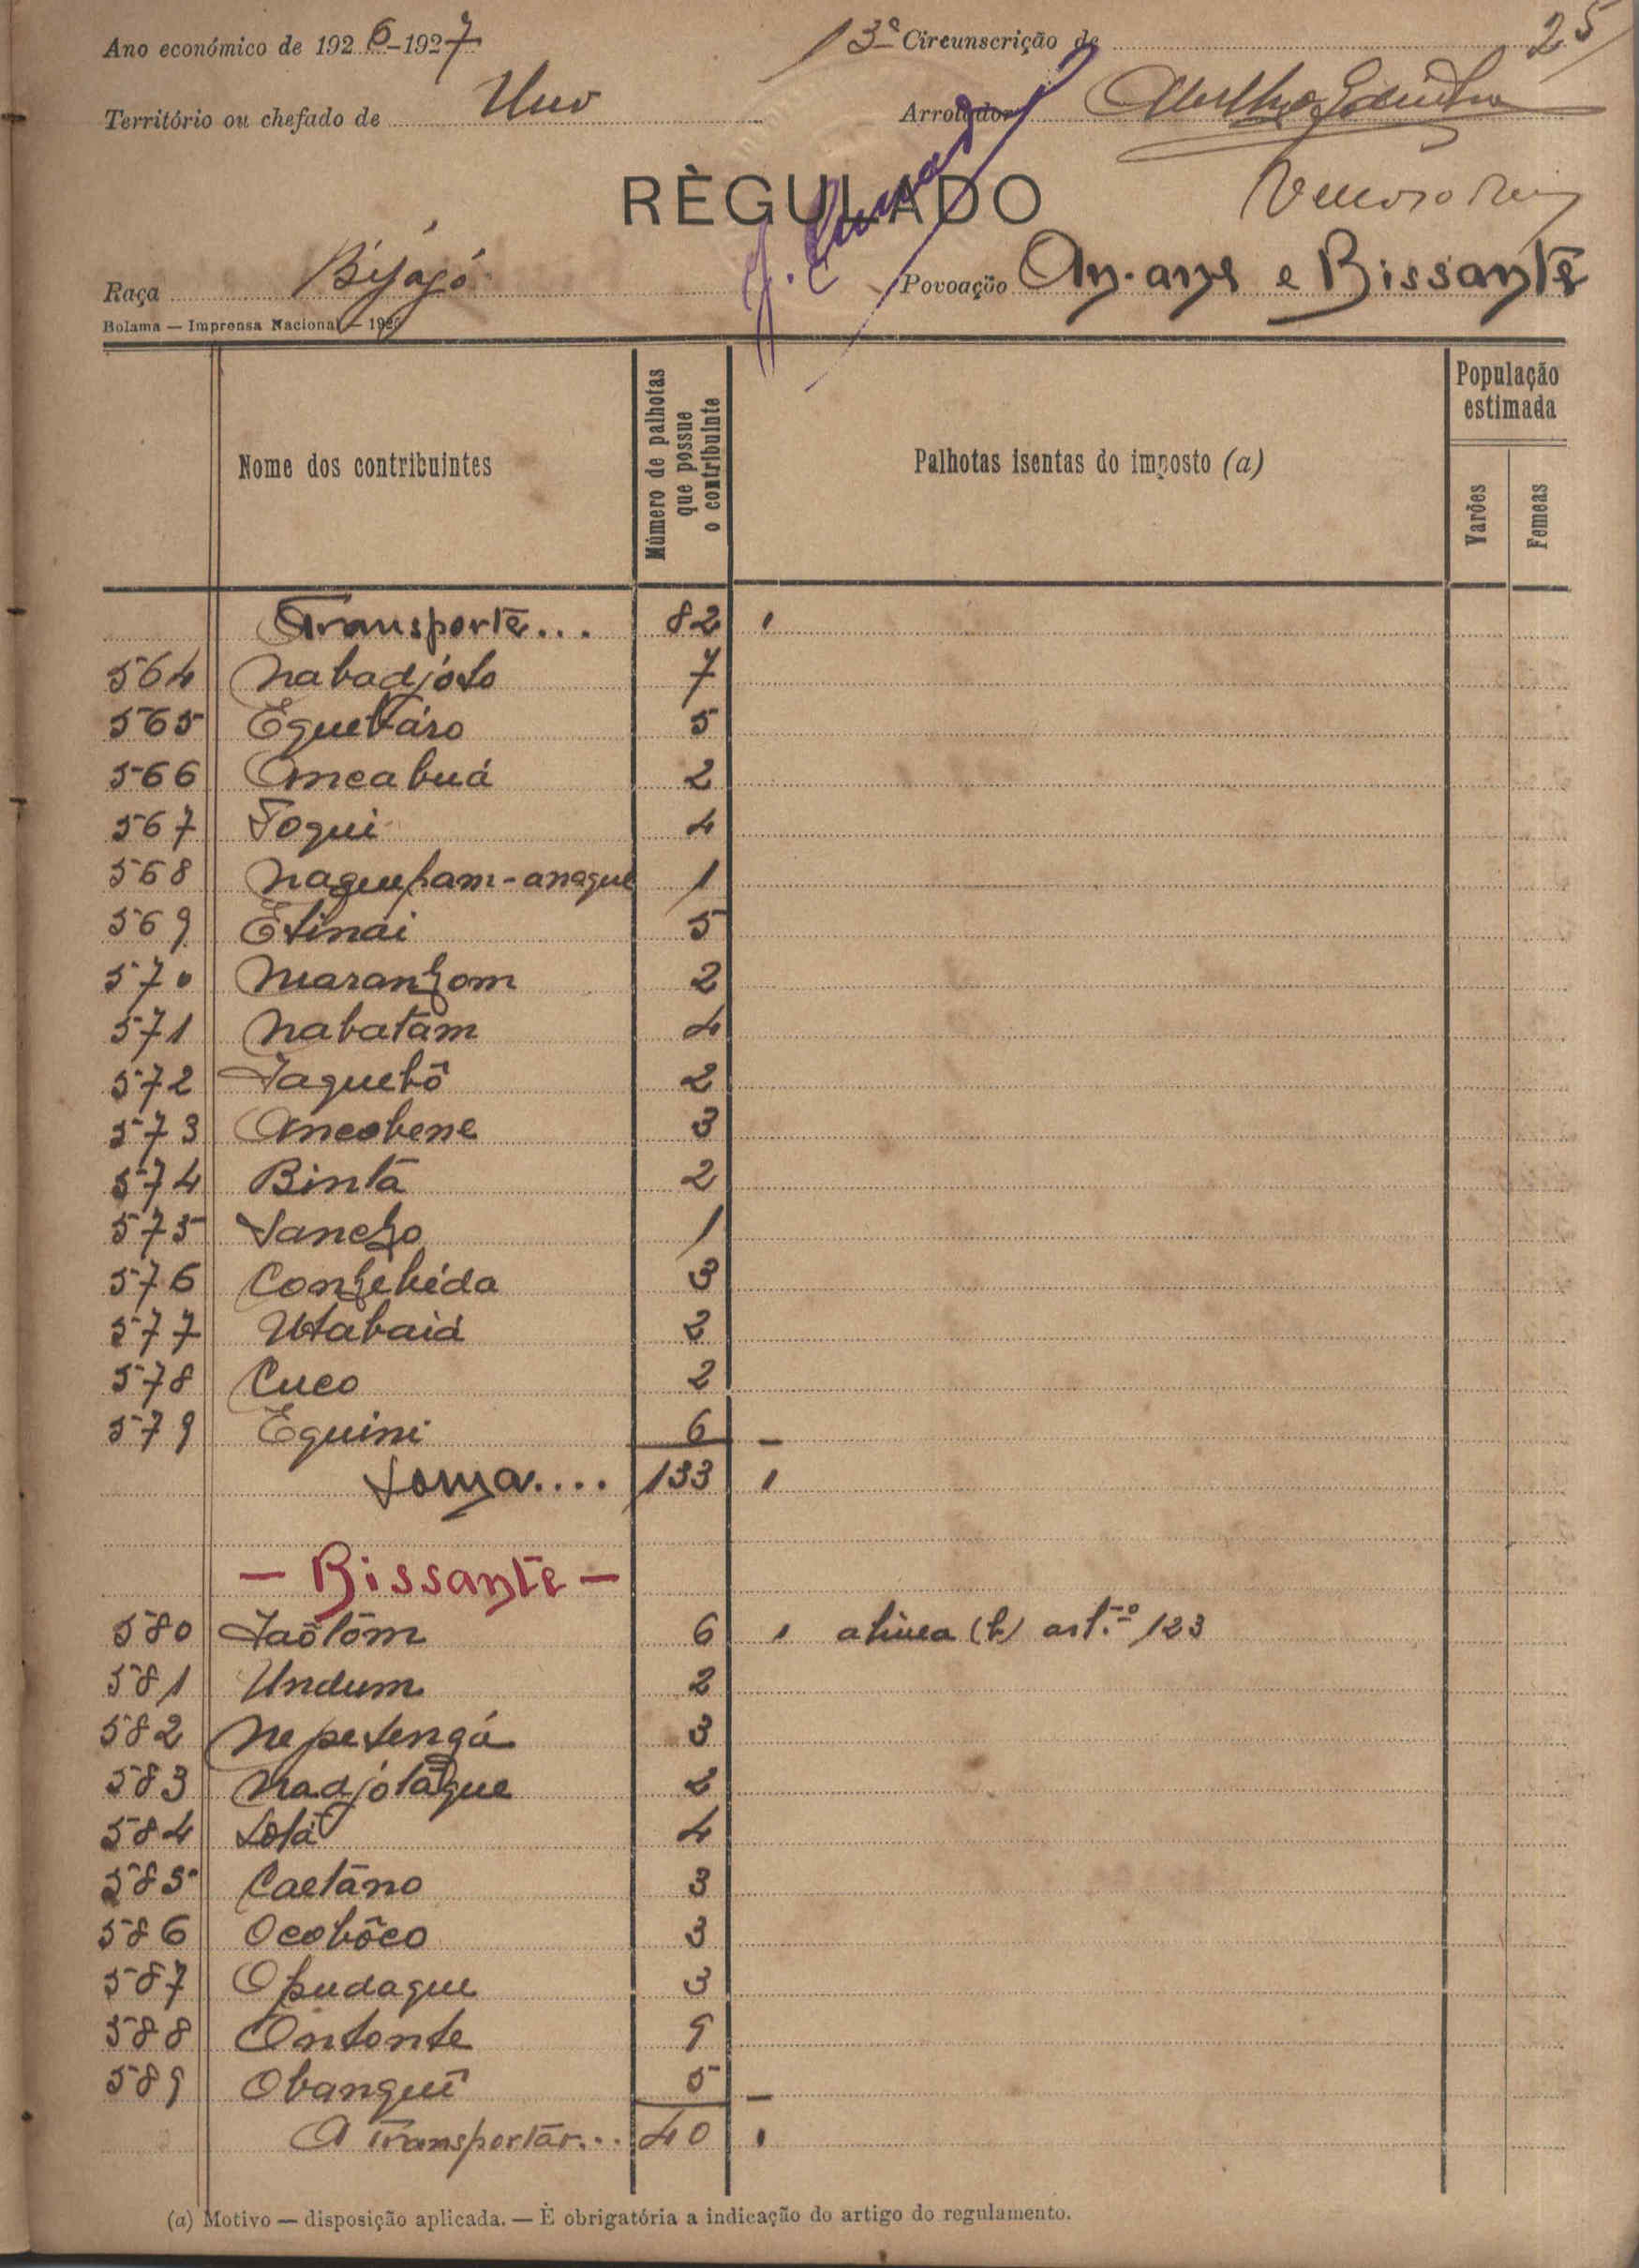 Ano económico de 1926-1927 13ª Circunscrição de 25
Território ou chefado de Uno Arrolador
RÈGULADO
Raça Bijagó Povoação An-anye e Bissante
Bolama — Imprensa Nacional — 1926
Nome dos contribuintes
Número de palhotas que possue o contribuinte
Palhotas isentas do imposto (a)
População estimada
Varões
Femeas
Transporte... 82 1
564 Nabadjóto 7
565 Equetáro 5
566 Ancabuá 2
567 Toqui 4
568 Naquepam-anaque 1
569 Etinai 5
570 Maranhom 2
571 Nabatam 4
572 Jaquebô 2
573 Ancobene 3
574 Bintá 2
575 Sancho 1
576 Conhebéda 3
577 Utabaiá 2
578 Cuco 2
579 Equini 6 —
Soma.... 133 1
— Bissante —
580 Jaôtôm 6 1 alinea (b) art.º 123
581 Undum 2
582 Nepetengá 3
583 Nadjótaque 2
584 Lotá 4
585 Caetano 3
586 Ocobôco 3
587 Opudaque 3
588 Ontonte 9
589 Obangui 5 —
A Transportar... 40 1
(a) Motivo — disposição aplicada. — É obrigatória a indicação do artigo do regulamento.